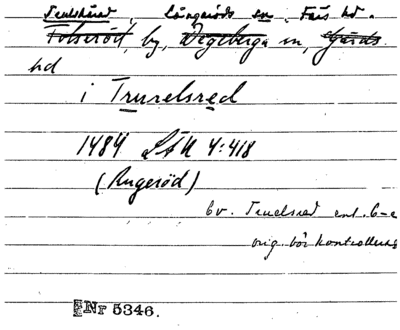 Truelsäröd, Långaröds sn. Färs hd.
Tolseröd, by, Degeberga sn, Gärds
hd
i Truuelsred
1484 LÄU 4:418
(Rugeröd)
bv. Truelsrad enl. C-e
orig. bör kontrolleras
Nr 5346.